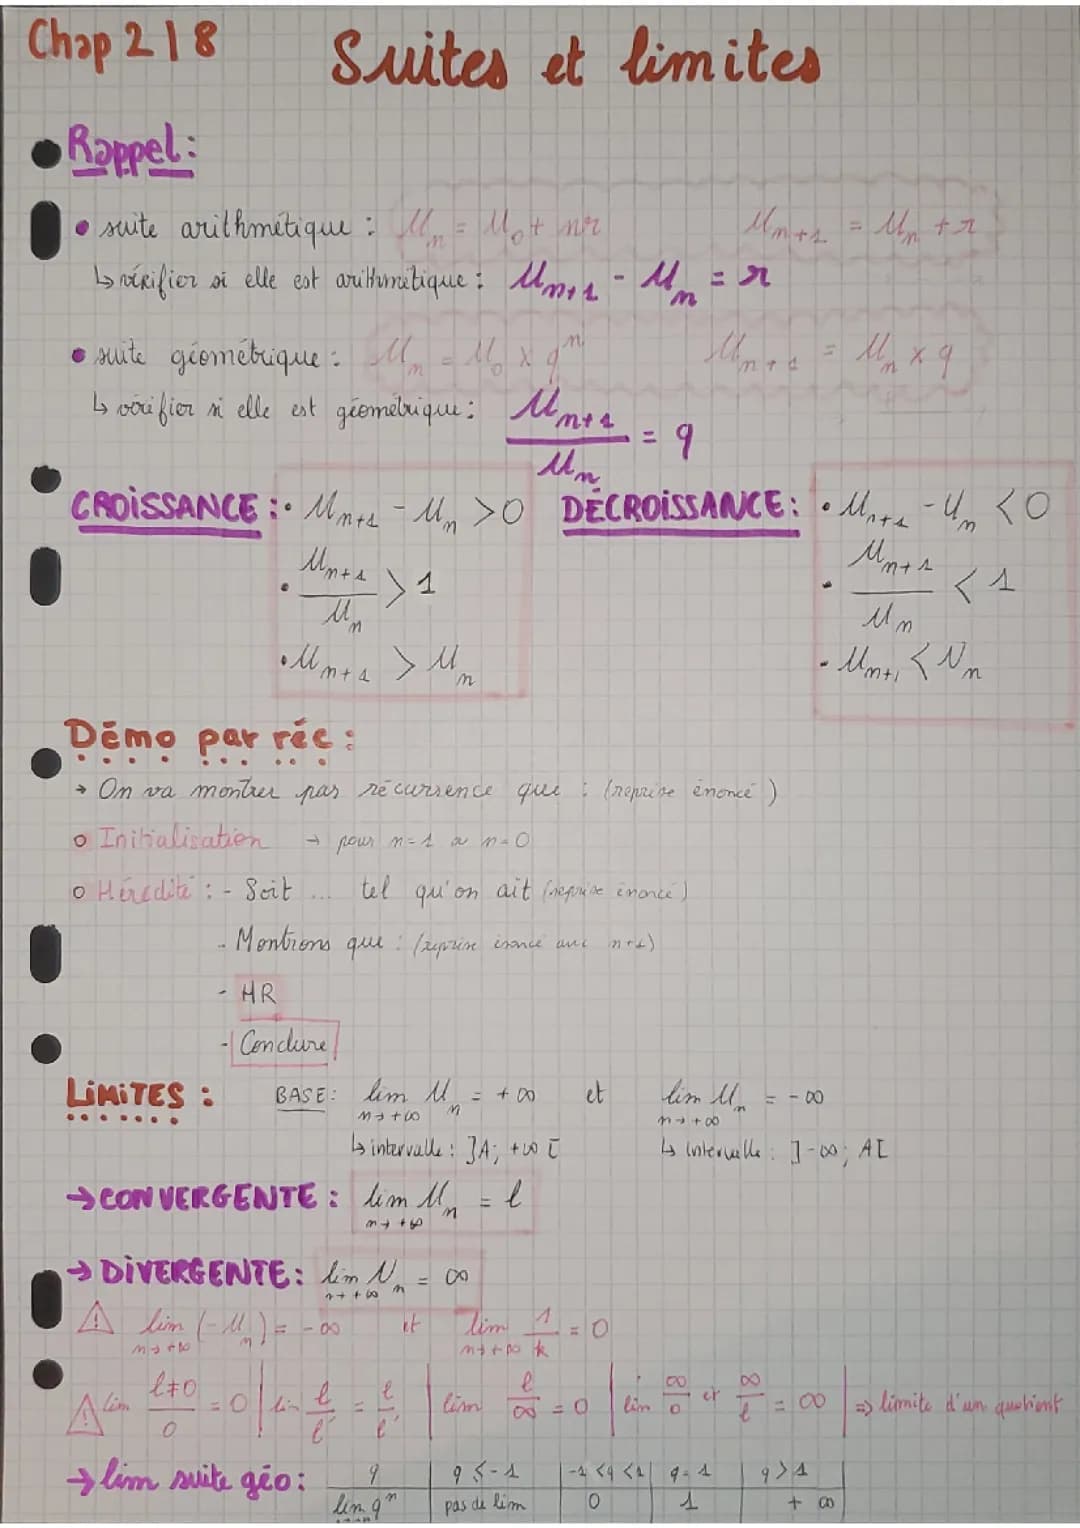 Chap 2 | 8 Suites et limites
Rappel :
• suite arithmétique : Un = U0 + nr Un+1 = Un + r
↳ vérifier si elle est arithmétique : Un+1 - Un = r
• suite géométrique : Un = U0 × q^n Un+1 = Un × q
↳ vérifier si elle est géométrique : Un+1 / Un = q
CROISSANCE : • Un+1 - Un > 0 DÉCROISSANCE : • Un+1 - Un < 0
• Un+1 / Un > 1 • Un+1 / Un < 1
• Un+1 > Un • Un+1 < Un
Démo par réc :
→ On va montrer par récurrence que : (reprise énoncé)
o Initialisation → pour n=1 ou n=0
o Hérédité : - Soit ... tel qu'on ait (reprise énoncé)
- Montrons que : (reprise énoncé avec n+1)
- HR
- Conclure
LIMITES : BASE : lim n→+∞ Un = +∞ et lim n→+∞ Un = -∞
↳ intervalle : ]A; +∞[ ↳ intervalle : ]-∞; A[
→ CONVERGENTE : lim n→+∞ Un = l
→ DIVERGENTE : lim n→+∞ Un = ∞
⚠ lim n→+∞ (-Un) = -∞ et lim n→+∞ 1/k = 0
⚠ lim l≠0 / 0 = 0 | lim l/l' = l/l' | lim l/∞ = 0 | lim ∞/0 et ∞/l = ∞ | ⇒ limite d'un quotient
→ lim suite géo : q | q ≤ -1 | -1 < q < 1 | q = 1 | q > 1
lim q^n | pas de lim | 0 | 1 | + ∞